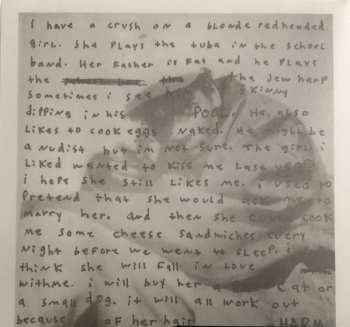 I have a crush on a blonde redheaded
girl. She plays the tuba in the school
band. Her Father is Fat and he plays
the the Jew harp
Sometimes i see him skinny
dipping in his POOL. He also
Likes to cook eggs naked. He might be
a nudist but im not sure. The girl i
Liked wanted to kiss me Last
i hope she still Likes me. i used to
Pretend that she would ask me to
marry her. and then she could cook
me some cheese sandwiches every
night before we went to sleep. i
think she will Fall in Love
withme. i will buy her a cat or
a small dog. it will all work out
because of her hair